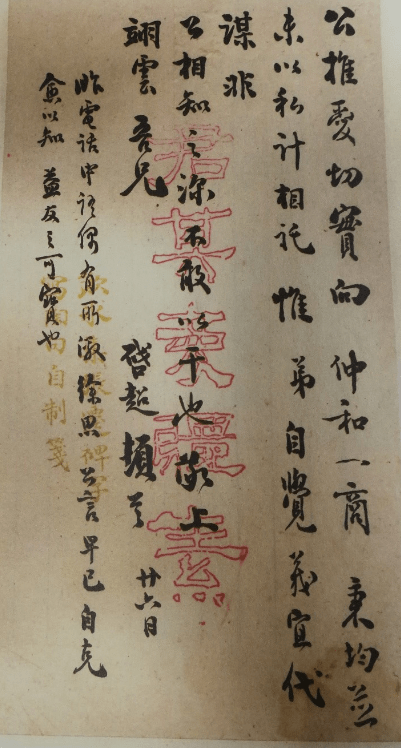 公推愛切實向 仲和一商 秉均並
未以私計相託 惟 弟自覺義宜代
謀 非
公相知之深 不敢以干也 敬上
翊雲吾兄 啓超頓首 廿六日
昨電話中語偶有所激 徐思 公言早已自克
愈以知 益友之可寶也
君其愛體素
碑字
自制箋